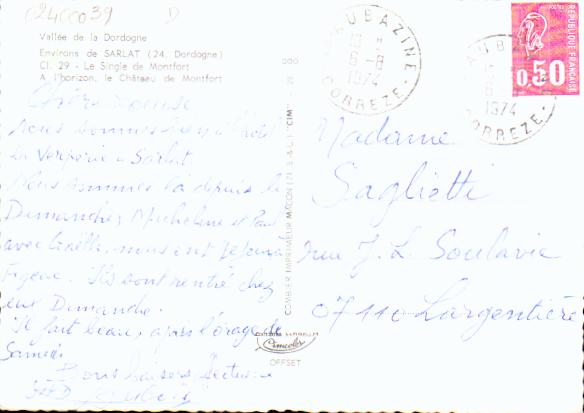 024CC039 D
Vallée de la Dordogne
Environs de SARLAT (24. Dordogne)
Cl. 29 - Le Single de Montfort
A l'horizon, le Château de Montfort
AUBAZINE
6-8
1974
CORREZE
AUBAZINE
1974
CORREZE
POSTES
RÉPUBLIQUE FRANÇAISE
0,50
COMBIER IMPRIMEUR MACON (71. S.-&-L.) "CIM"
Chère
nous sommes à l'hôtel
La Verperie à Sarlat.
Nous sommes là depuis le
Dimanche, Micheline et Paul
avec nous ont
Figeac. Ils sont rentré chez
eux Dimanche.
Il fait beau, après l'orage de
Samedi.
Bons baisers
Madame
Saglietti
rue J. L. Soulavie
07110 Largentière
Cimcolor
OFFSET